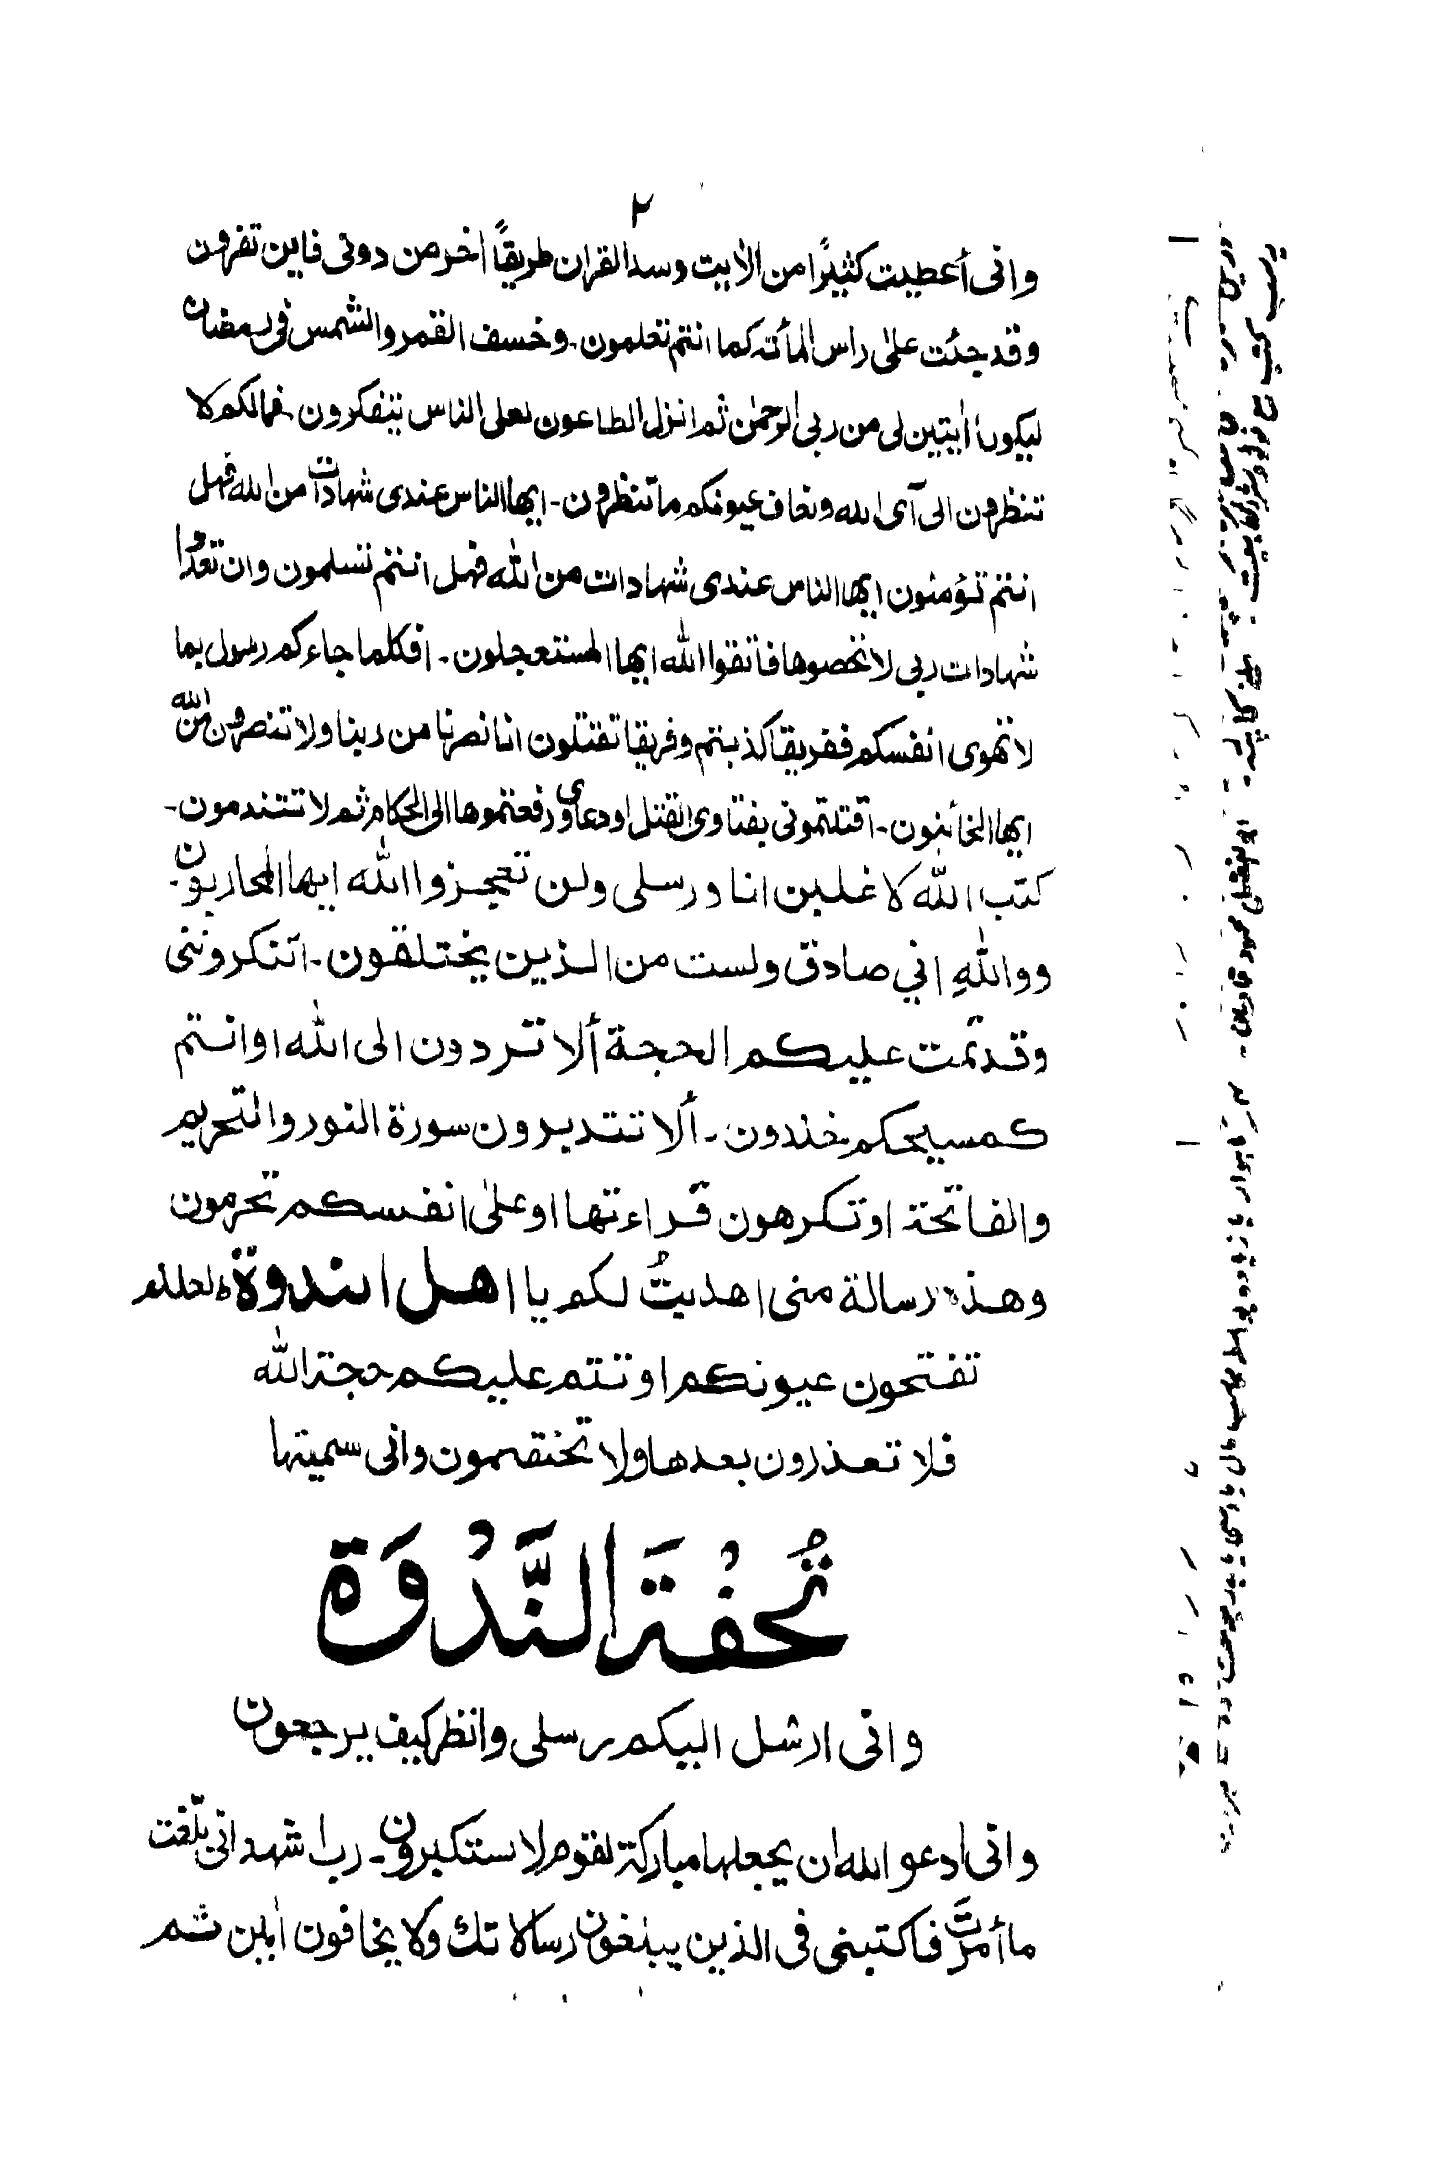 ٢
وانى أعطيت كثيرًا من الأيت وسد القران طريقًا اخر من دونى فاين تفرون
وقد جئت على راس المأته كما انتم تعلمون - وخسف القمر والشمس فى رمضان
ليكونا أيتين لى من ربى الرحمٰن ثم انزل الطاعون لعلى الناس يتفكرون - فمالكم لا
تنظرون الى آى الله وتعاف عيونكم ما تنظرون - ايها الناس عندى شهادات من الله فهل
انتم تؤمنون ايها الناس عندى شهادات من الله فهل انتم تسلمون وان تعدوا
شهادات ربى لا تحصوها فاتقوا الله ايها المستعجلون - افكلما جاءكم رسول بما
لا تهوى انفسكم ففريقا كذبتم وفريقا تقتلون انا نصرنا من ربنا ولا تنصرون من الله
ايها الخائنون - اقتلتمونى بفتاوى القتل او دعاوى رفعتموها الى الحكام ثم لا تتندمون -
كتب الله لاغلبن انا ورسلى ولن تعجزوا الله ايها المحاربون -
ووالله اني صادق ولست من الذين يختلقون - اتنكروننى
وقد تمت عليكم الحجة ألا تردون الى الله او انتم
كمسيحكم خلدون - ألا تتدبرون سورة النور والتحريم
والفاتحة او تكرهون قراءتها او على انفسكم تحرمون
وهذه رسالة منى اهديتُ لكم يا اهل الندوة لعلكم
تفتحون عيونكم او تتم عليكم حجة الله
فلا تعذرون بعدها ولا تختصمون وانى سميتها
تُحفَةُ النَّدْوَة
وانى ارسل اليكم رسلى وانظر كيف يرجعون
وانى ادعو الله ان يجعلها مباركة لقوم لا يستكبرون - رب اشهد انى بلغت
ما أمرتَ فاكتبنى فى الذين يبلغون رسالاتك ولا يخافون أمين ثم